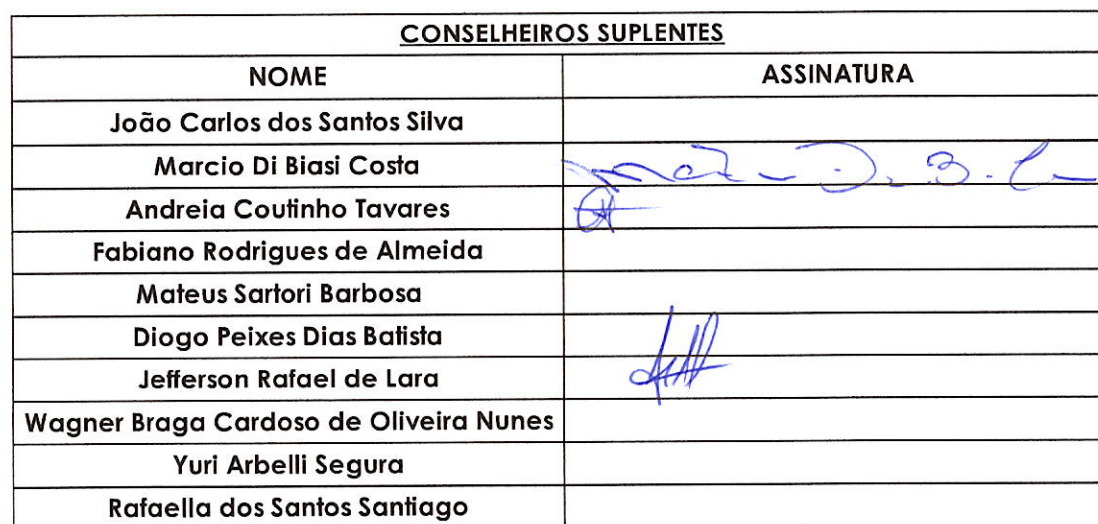 CONSELHEIROS SUPLENTES
NOME ASSINATURA
João Carlos dos Santos Silva
Marcio Di Biasi Costa
Andreia Coutinho Tavares
Fabiano Rodrigues de Almeida
Mateus Sartori Barbosa
Diogo Peixes Dias Batista
Jefferson Rafael de Lara
Wagner Braga Cardoso de Oliveira Nunes
Yuri Arbelli Segura
Rafaella dos Santos Santiago